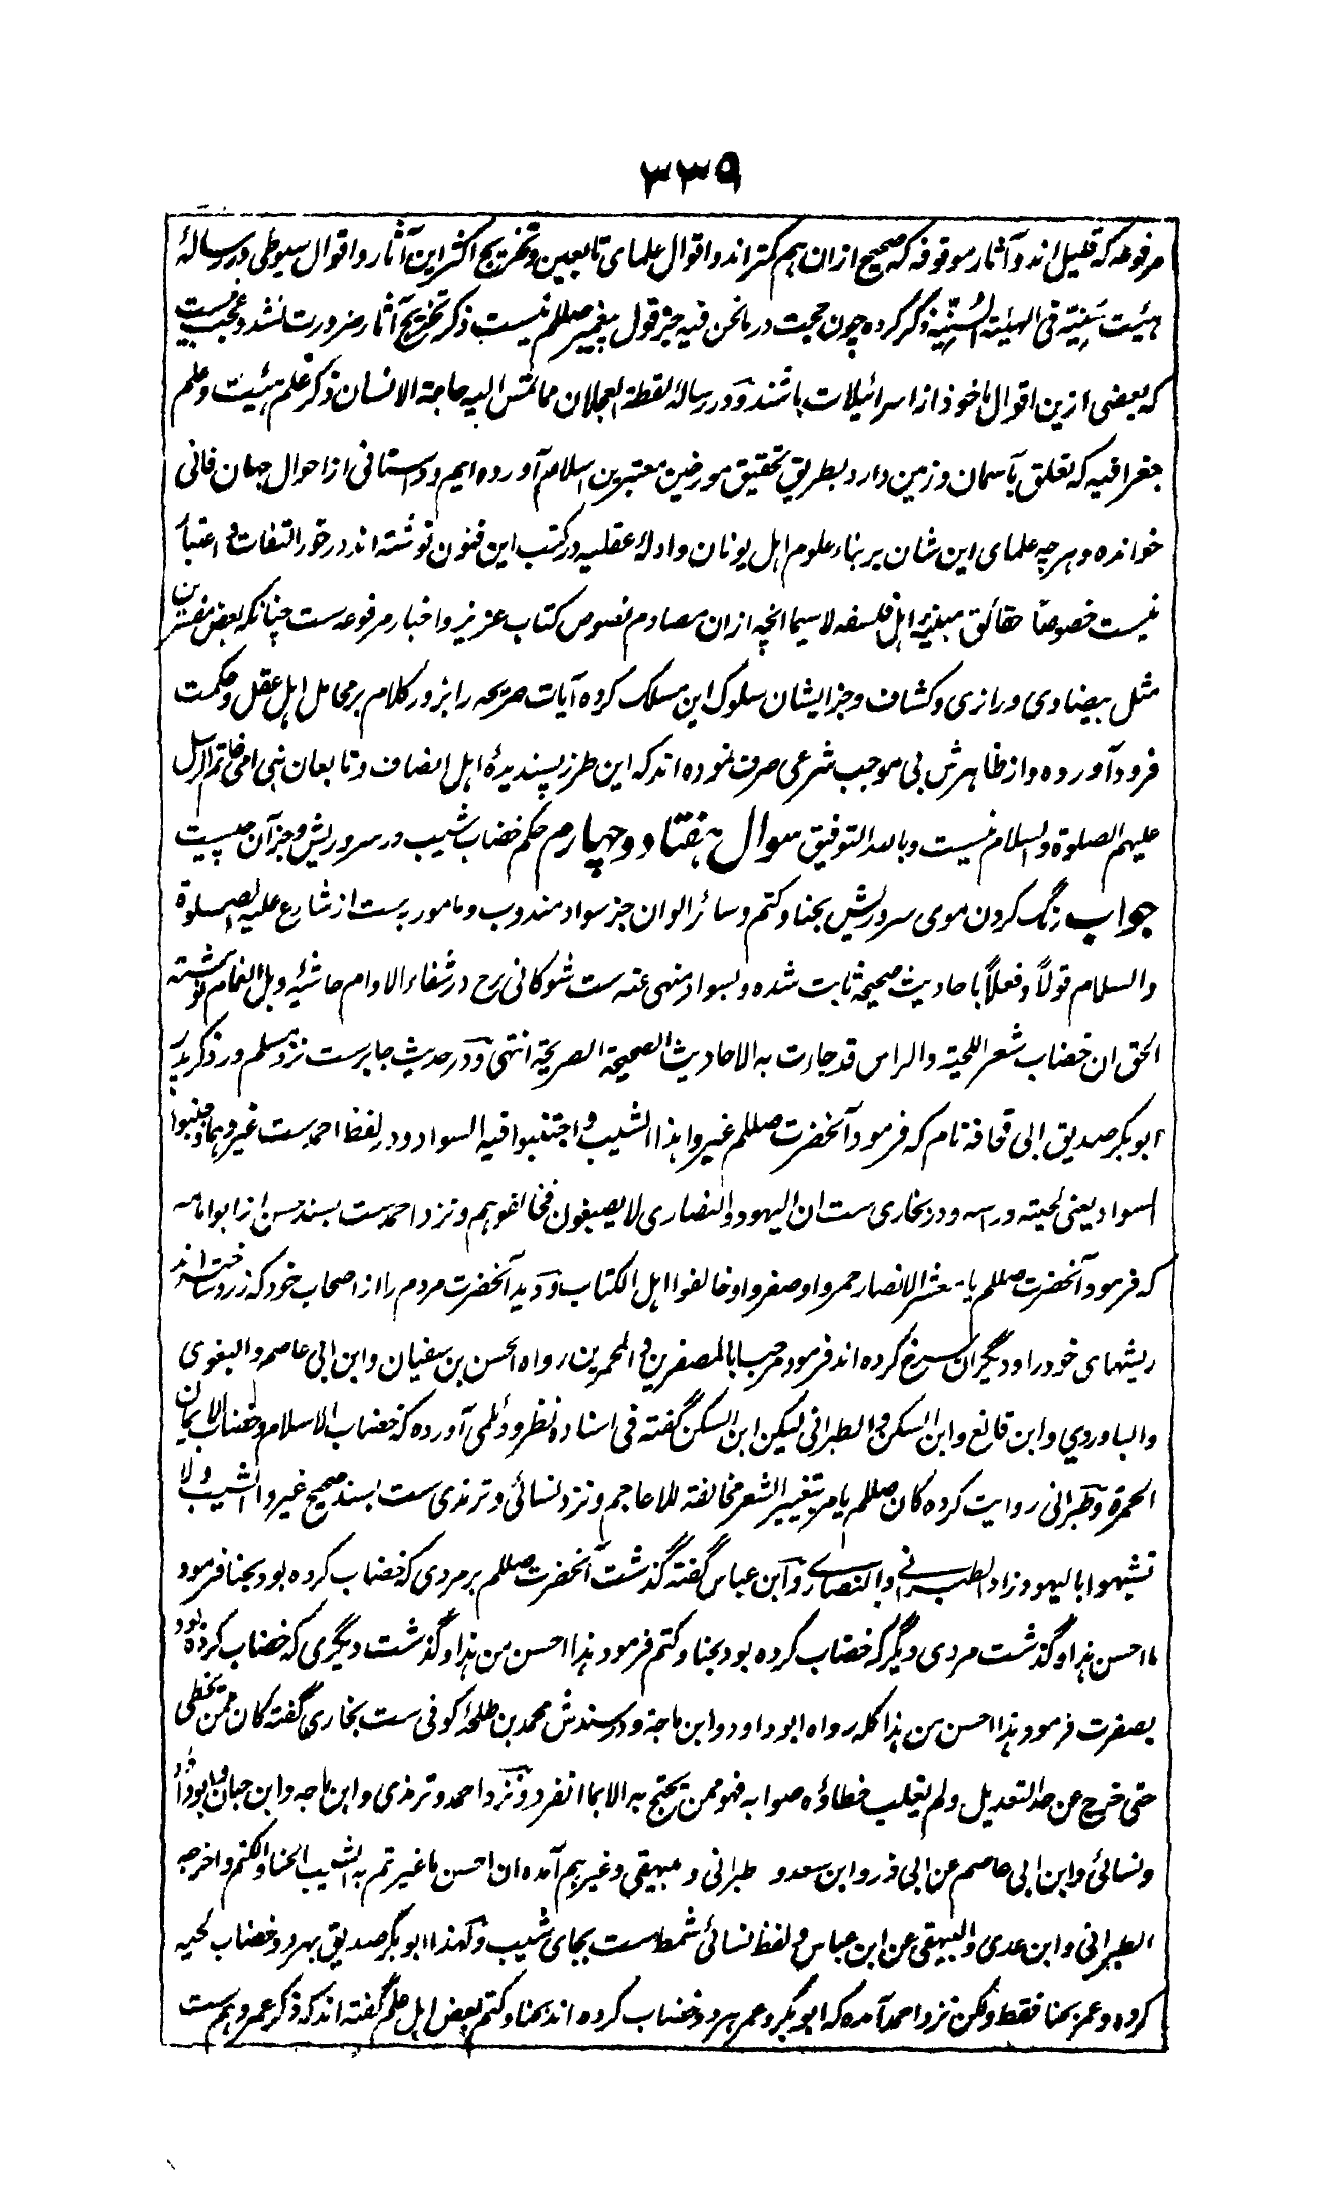 ۳۳۹
مرفوعه که قلیل اند و آثار موقوفه که صحیح ازان هم کمتر اند و اقوال علمای تابعین و تخریج اکثر این آثار و اقوال سیوطی در رسالهٔ
هیئت سَنِیّه فی الهیئة السُنّیّة ذکر کرده چون حجت در ما نحن فیه جز قول پیغمبر صللم نیست ذکر تخریج آثار ضرورت نشد و عجب نیست
که بعضی ازین اقوال ماخوذ از اسرائیلات باشند و در رسالهٔ لقطة العجلان مما تمس الیه حاجة الانسان ذکر علم هیئت و علم
جغرافیه که تعلق بآسمان و زمین دارد بطریق تحقیق مورخین معتبرین اسلام آورده ایم و داستانی از احوال جهان فانی
خوانده و هر چه علمای این شان بر بناء علوم اهل یونان و ادلهٔ عقلیه در کتب این فنون نوشته اند در خور التفات و اعتبار
نیست خصوصاً حقائق اهل فلسفه لا سیما انچه ازان مصادم نصوص کتاب عزیز و اخبار مرفوعه ست چنانکه بعض مفسرین
مثل بیضاوی و رازی و کشاف و جز ایشان سلوک این مسلک کرده آیات صریحه را بزور کلام بر محامل اهل عقل و حکمت
فرود آورده و از ظاهرش بی موجب شرعی صرف نموده اند که این طرز پسندیدهٔ اهل انصاف و تابعان نبی امی خاتم الرسل
علیهم الصلوة و السلام نیست و بالله التوفیق سوال هفتاد و چهارم حکم خضاب شیب در سر و ریش و جز آن چیست
جواب رنگ کردن موی سر و ریش بحنا و کتم و سائر الوان جز سواد مندوب و مامور به ست از شارع علیه الصلوة
والسلام قولاً و فعلاً باحادیث صحیحه ثابت شده و بسواد منهی عنه ست شوکانی رح در شفاء الاوام حاشیهٔ وبل الغمام نوشته
الحق ان خضاب شعر اللحیة والراس قد جاءت به الاحادیث الصحیحة الصریحة انتهی و در حدیث جابر ست نزد مسلم در ذکر پدر
ابوبکر صدیق ابی قحافه نام که فرمود آنحضرت صللم غیروا هذا الشیب و اجتنبوا فیه السواد و در لفظ احمد ست غیروهما و جنبوا
السواد یعنی لحیته و راسه و در بخاری ست ان الیهود والنصاری لا یصبغون فخالفوهم و نزد احمد ست بسند حسن از ابو امامه
که فرمود آنحضرت صللم یا معشر الانصار حمروا و صفروا و خالفوا اهل الکتاب و دید آنحضرت مردم را از اصحاب خود که زرد ساخته اند
ریشهای خود را و دیگران سرخ کرده اند فرمود مرحبا بالمصفرین والمحمرین رواه الحسن بن سفیان و ابن ابی عاصم والبغوی
والباوردی و ابن قانع و ابن السکن والطبرانی لیکن ابن السکن گفته فی اسناده نظر و دیلمی آورده که خضاب الاسلام و خضاب الایمان
الحمرة و طبرانی روایت کرده کان صللم یامر بتغییر الشعر مخالفة للاعاجم و نزد نسائی و ترمذی ست بسند صحیح غیروا الشیب ولا
تشبهوا بالیهود زاد الطبرانی او بالنصاری و ابن عباس گفته گذشت آنحضرت صللم بر مردی که خضاب کرده بود بحنا فرمود
ما احسن هذا و گذشت مردی دیگر که خضاب کرده بود بحنا و کتم فرمود هذا احسن من هذا و گذشت دیگری که خضاب کرده بود
بصفرت فرمود هذا احسن من هذا کله رواه ابو داود و ابن ماجة و در سندش محمد بن طلحه کوفی ست بخاری گفته کان ممن یخطی
حتی خرج عن حد التعدیل ولم یغلب خطاؤه صوابه فهو ممن یحتج به الا بما انفرد و نزد احمد و ترمذی و ابن ماجه و ابن حبان و ابو داؤد
و نسائی و ابن ابی عاصم عن ابی ذر و ابن سعد و طبرانی و بیهقی و غیرهم آمده ان احسن ما غیرتم به الشیب الحنا و الکتم و اخرجه
الطبرانی و ابن عدی والبیهقی عن ابن عباس و لفظ نسائی شمط ست بجای شیب و لهذا ابوبکر صدیق بهر دو خضاب لحیه
کرده و عمر بحنا فقط و لکن نزد احمد آمده که ابوبکر و عمر بهر دو خضاب کرده اند بحنا و کتم بعض اهل علم گفته اند که ذکر عمر وهم ست